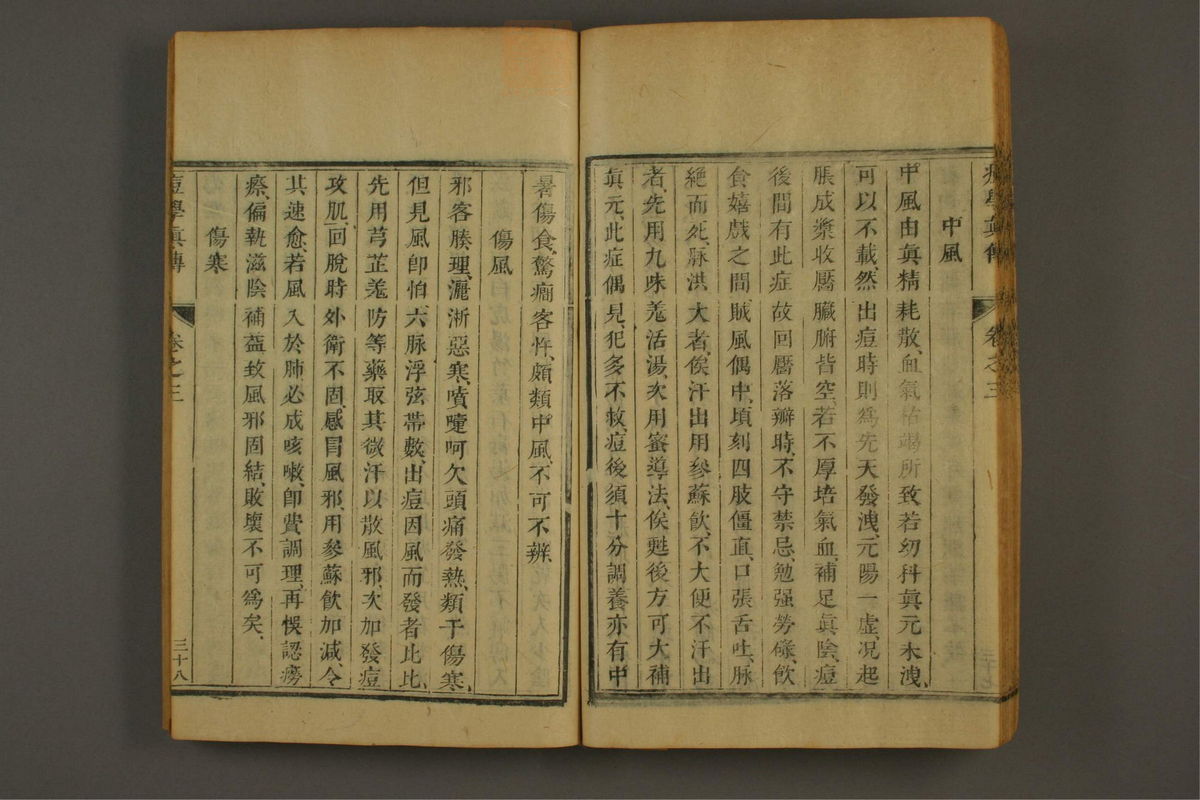 痘學眞傳 卷之三
中風
中風由眞精耗散、血氣祐竭所致、若幼科眞元未洩、
可以不載、然出痘時則爲先天發洩、元陽一虛、况起
脹成漿收靨臟腑皆空、若不厚培氣血、補足眞陰、痘
後間有此症、故回靨落瓣時、不守禁忌、勉强勞碌、飲
食嬉戲之間、賊風偶中、頃刻四肢僵直、口張舌吐、脉
絶而死、脉洪大者、俟汗出用參蘇飲、不大便不汗出
者、先用九味羗活湯、次用蜜導法、俟甦後方可大補
眞元、此症偶見、犯多不救、痘後須十分調養、亦有中
暑傷食、驚癎客忤、頗類中風、不可不辨、
傷風
邪客腠理、灑淅惡寒、噴嚏呵欠、頭痛發熱、類于傷寒、
但見風卽怕、六脉浮弦帶數、出痘因風而發者比比、
先用芎芷羗防等藥、取其微汗以散風邪、次加發痘
攻肌、回脫時外衛不固、感冒風邪、用參蘇飲加减、令
其速愈、若風入於肺、必成咳嗽、卽費調理、再悞認癆
瘵、偏執滋陰補葢、致風邪固結、敗壞不可爲矣、
傷寒
痘學眞傳 卷之三 三十八